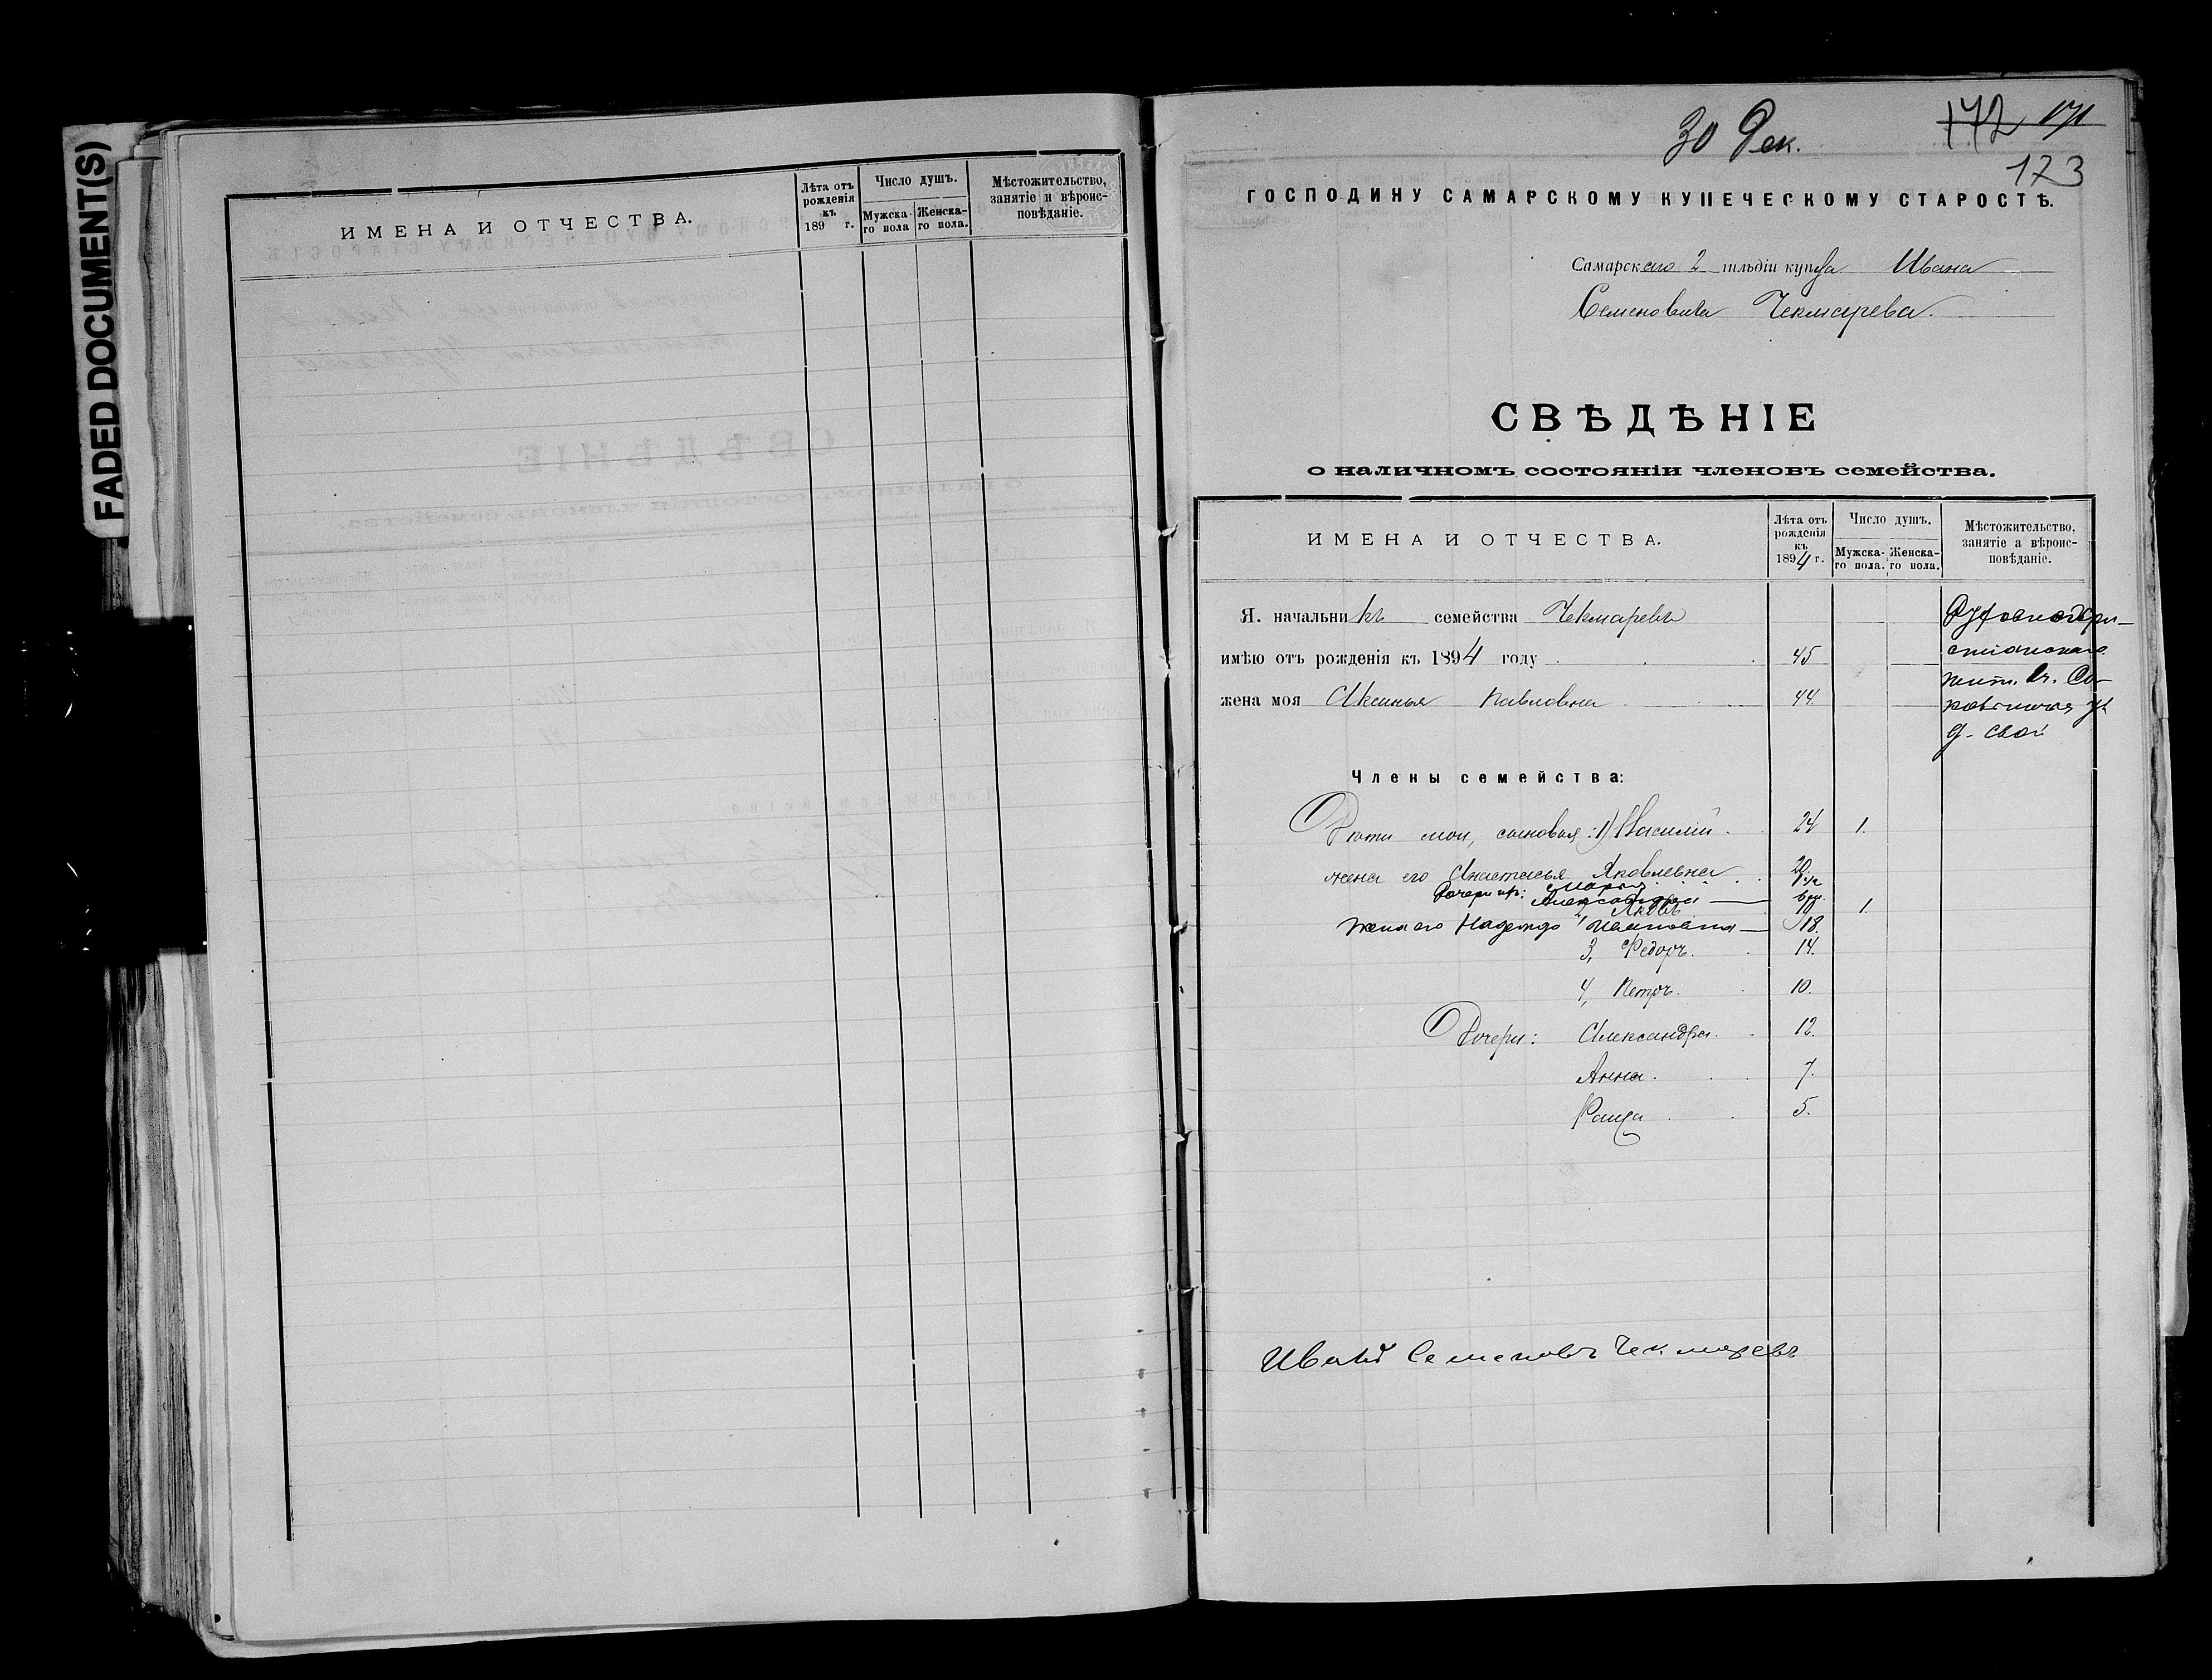 FADED DOCUMENT(S)
ИМЕНА И ОТЧЕСТВА.
Лѣта отъ рожденія къ 189 г.
Число душъ.
Мужска-го пола
Женска-го пола.
Мѣстожительство, занятіе и вѣроис-повѣданіе.
30 Дек.
172 171
173
ГОСПОДИНУ САМАРСКОМУ КУПЕЧЕСКОМУ СТАРОСТѢ.
Самарскаго 2 гильдіи купца Ивана
Семеновича Чекмарева.
СВѢДѢНІЕ
о наличномъ состояніи членовъ семейства.
ИМЕНА И ОТЧЕСТВА.
Лѣта отъ рожденія къ 1894 г.
Число душъ.
Мужска-го пола.
Женска-го пола.
Мѣстожительство, занятіе а вѣроис-повѣданіе.
Я. начальникъ семейства Чекмаревъ
имѣю отъ рожденія къ 1894 году 45
жена моя Аксинья Павловна 44.
Духовнохри-
стіанскаго
жит.
д. свой
Члены семейства:
Дѣти мои, сыновья: 1) Василій. 24 1.
жена его Анастасья Яковлевна 20.
Дочери их: Марья
Александра
2, Яковъ 19 1.
жена его Надежда Ивановна 18.
3, Федоръ. 14.
4, Петръ. 10.
Дочери: Александра. 12.
Анна. 7.
Раиса 5.
Иванъ Семеновъ Чекмаревъ